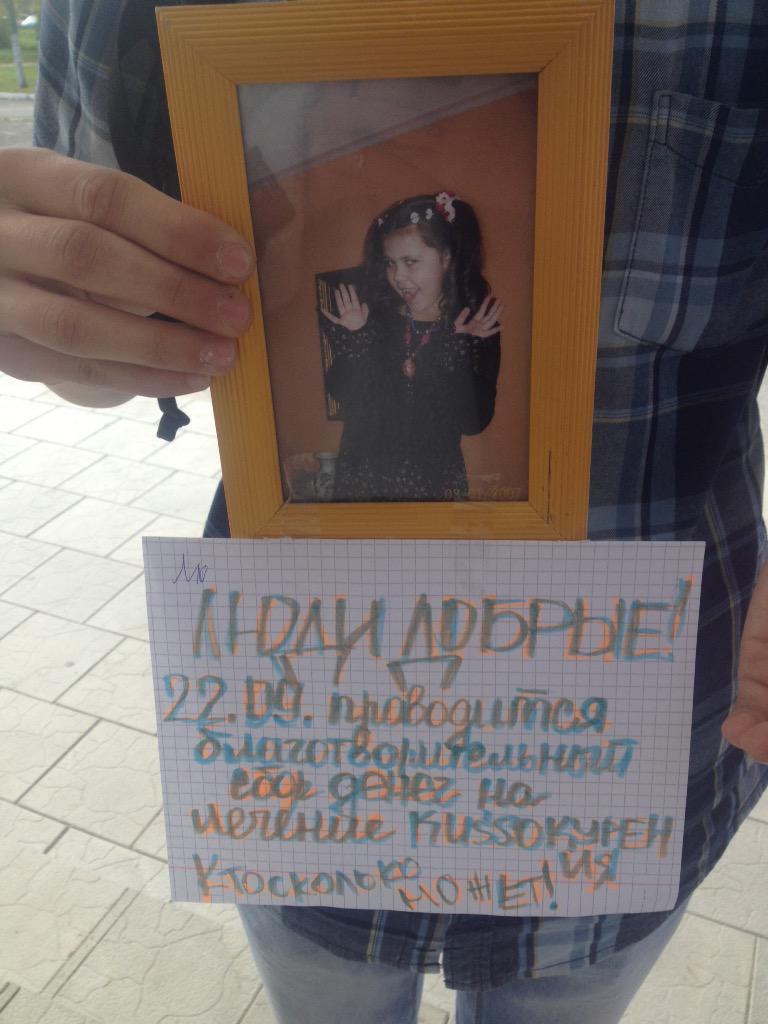 Лю
ЛЮДИ ДОБРЫЕ!
22.09. проводится
благотворительный
сбор денег на
лечение KUSSOКУРЕН
ИЯ
КТО СКОЛЬКО МОЖЕТ!